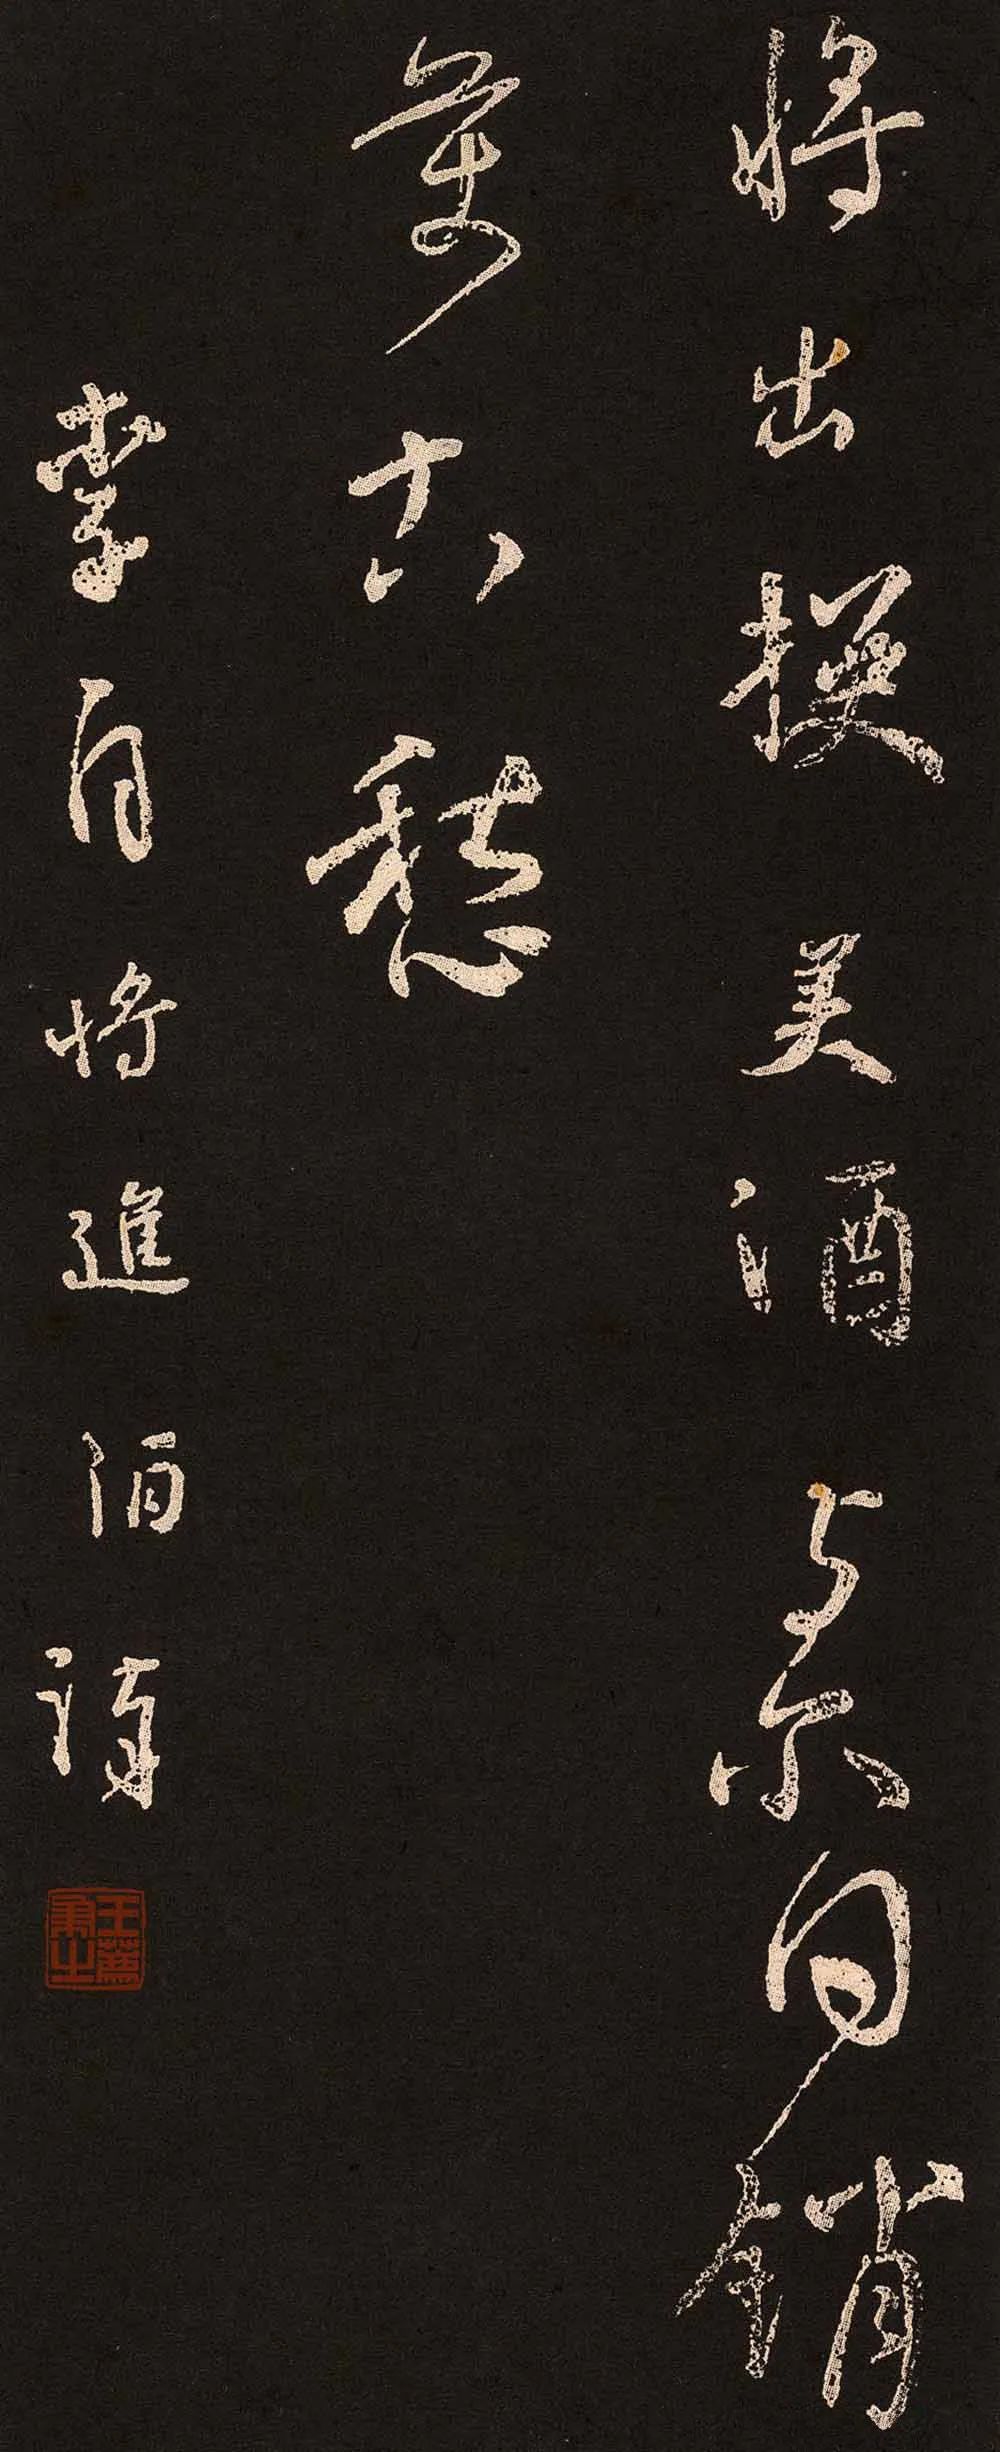 將出換美酒与尔同銷
萬古愁
李白將進酒詩